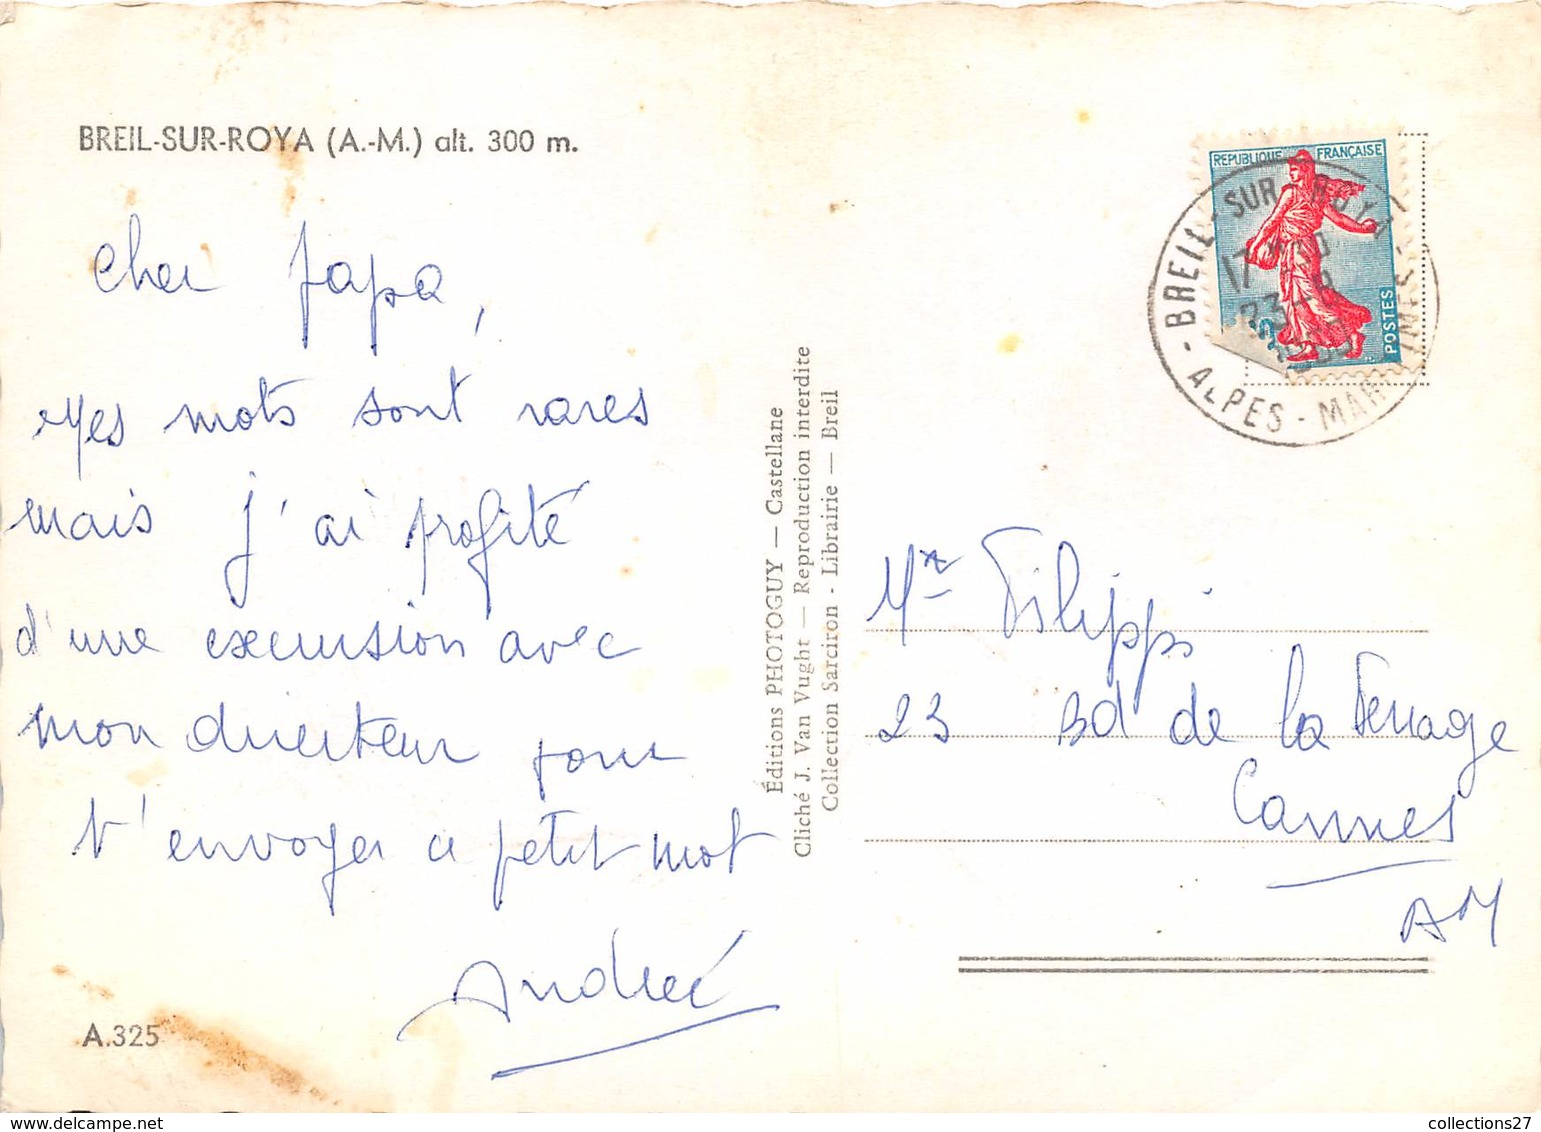 BREIL-SUR-ROYA (A.-M.) alt. 300 m.
Cher Papa,
Mes mots sont rares
mais j'ai profité
d'une excursion avec
mon directeur pour
t'envoyer ce petit mot
André
A.325
Éditions PHOTOGUY — Castellane
Cliché J. Van Vught — Reproduction interdite
Collection Sarciron - Librairie — Breil
REPUBLIQUE FRANÇAISE
POSTES
BREIL-SUR-ROYA
17 30
23-8
ALPES-MARITIMES
Mr Filippi
23 Bd de la Ferrage
Cannes
AM
collections27